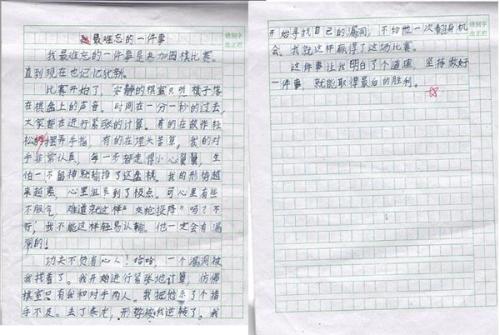 最难忘的一件事
我最难忘的一件事是参加围棋比赛。
直到现在也记忆犹新。
比赛开始了，安静的棋室只听棋子落
在棋盘上的声音。时间在一分一秒的过去，
大家都在进行紧张的计算。有的在故作轻
松的摆弄手指，有的在埋头苦算。我的对
手非常认真，每一步都走得小心翼翼，生
怕一不留神就输掉了这盘棋。我的形势越
来越紧，心里
不服气，难道就这样“夹枪投降”吗？不
行，我不能这样轻易认输，他一定会有漏
洞的！
功夫不负有心人！哈哈，一个漏洞被
我找着了。我开始进行紧张地计算，仿佛
棋室只有我和对手两人。我把他杀了个措
手不及。去了
开始寻找自己的漏洞，不给他一次翻身机
会。我就这样赢得了这场比赛。
这件事让我明白了个道理，坚持做好
一件事，就能取得最后的胜利。